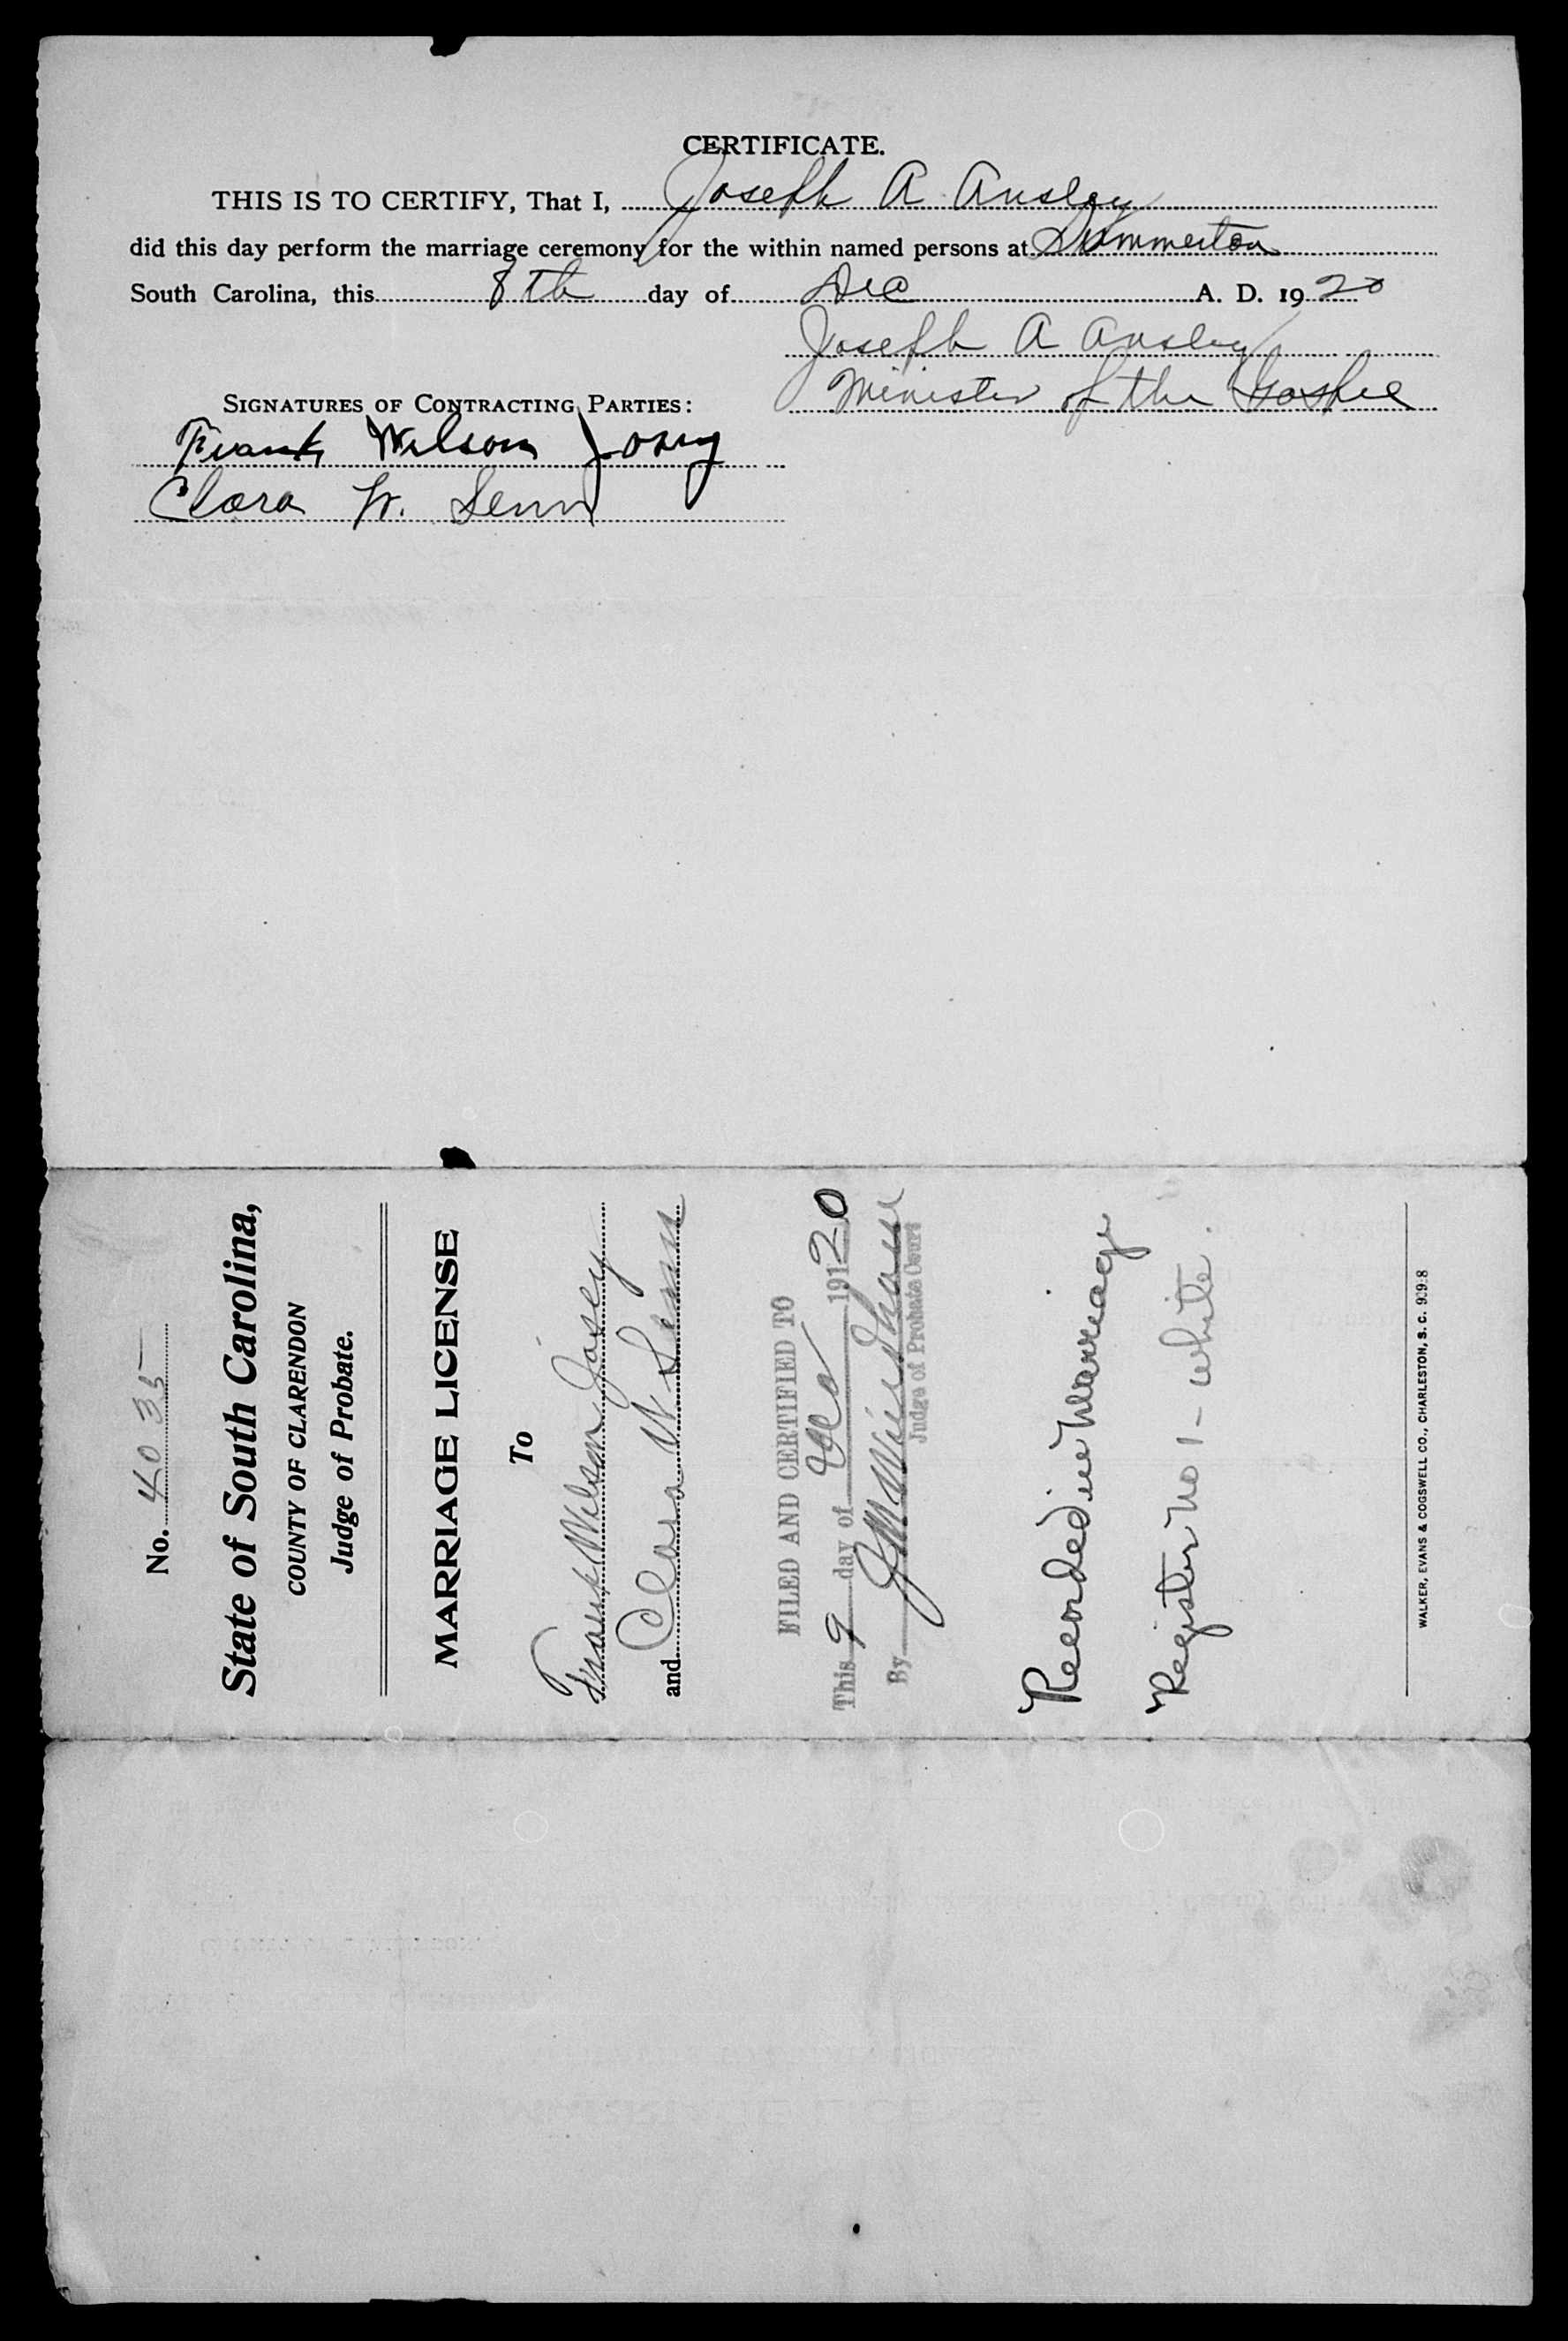 CERTIFICATE.
THIS IS TO CERTIFY, That I, Joseph A Ansley
did this day perform the marriage ceremony for the within named persons at Summerton
South Carolina, this 8th day of Dec A. D. 1920
Joseph A Ansley
Minister of the Gospel
SIGNATURES OF CONTRACTING PARTIES:
Frank Wilson Josey
Clara W. Senn
No. 4035
State of South Carolina,
COUNTY OF CLARENDON
Judge of Probate.
MARRIAGE LICENSE
To
Frank Wilson Josey
and Clara W Senn
FILED AND CERTIFIED TO
This 9 day of Dec 19120
By J M Windham
Judge of Probate Court
Recorded in Marriage
Register No 1 - white.
WALKER, EVANS & COGSWELL CO., CHARLESTON, S. C.